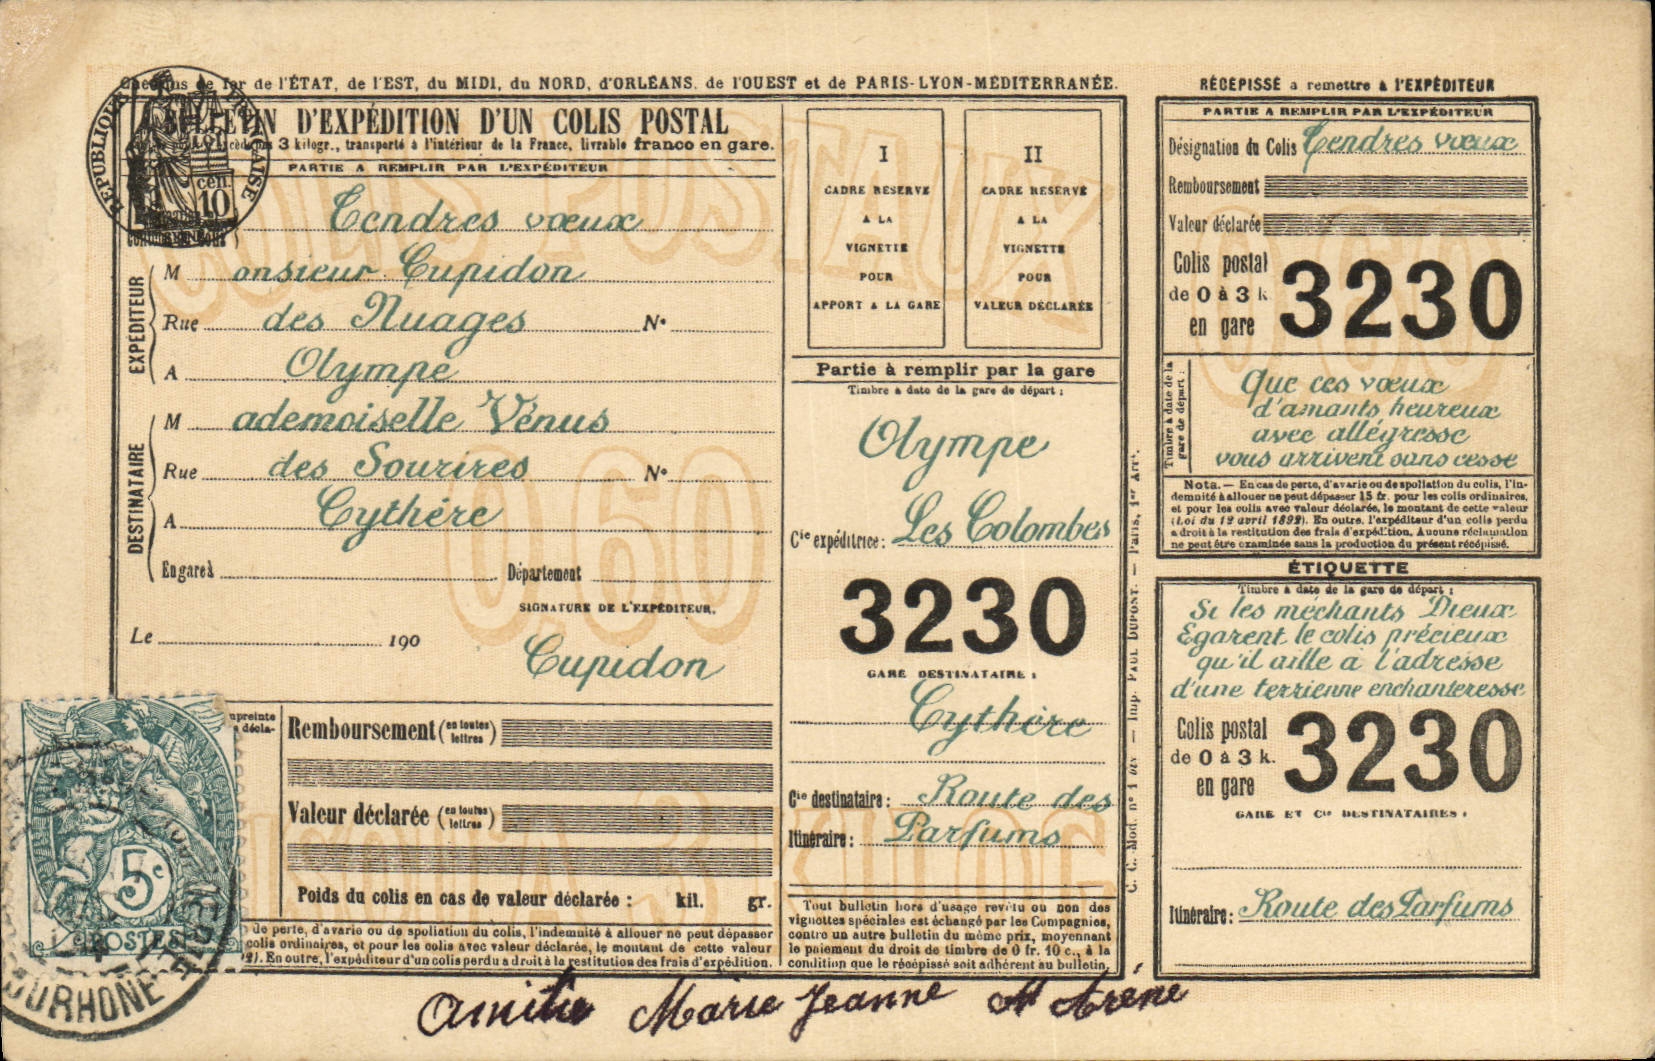 Chemins de fer de l'ÉTAT, de l'EST, du MIDI, du NORD, d'ORLÉANS. de l'OUEST et de PARIS-LYON-MÉDITERRANÉE.
RÉPUBLIQUE FRANÇAISE
cen.
10
BULLETIN D'EXPÉDITION D'UN COLIS POSTAL
3 kilogr., transporté à l'intérieur de la France, livrable franco en gare.
PARTIE A REMPLIR PAR L'EXPÉDITEUR
Tendres vœux
EXPÉDITEUR
M onsieur Cupidon
Rue des Nuages N°
A Olympe
DESTINATAIRE
M ademoiselle Vénus
Rue des Sourires N°
A Cythère
En gare à Département
SIGNATURE DE L'EXPÉDITEUR.
Le 190
Cupidon
COLIS POSTAUX
0,60
JUSQU'A 3 KILOG
Remboursement (en toutes lettres)
Valeur déclarée (en toutes lettres)
Poids du colis en cas de valeur déclarée : kil. gr.
de perte, d'avarie ou de spoliation du colis, l'indemnité à allouer ne peut dépasser
colis ordinaires, et pour les colis avec valeur déclarée, le montant de cette valeur
En outre, l'expéditeur d'un colis perdu a droit à la restitution des frais d'expédition.
5c
POSTES
I
CADRE RESERVÉ
A LA
VIGNETTE
POUR
APPORT A LA GARE
II
CADRE RESERVÉ
A LA
VIGNETTE
POUR
VALEUR DÉCLARÉE
Partie à remplir par la gare
Timbre à date de la gare de départ :
Olympe
Cie expéditrice : Les Colombes
3230
GARE DESTINATAIRE :
Cythère
Cie destinataire : Route des
Itinéraire : Parfums
Tout bulletin hors d'usage revêtu ou non des
vignettes spéciales est échangé par les Compagnies,
contre un autre bulletin du même prix, moyennant
le paiement du droit de timbre de 0 fr. 10 c., à la
condition que le récépissé soit adhérent au bulletin.
C. C. Mod. n° 1 bis — Imp. PAUL DUPONT. — Paris, 1er Arrt.
RÉCÉPISSÉ a remettre à l'EXPÉDITEUR
PARTIE A REMPLIR PAR L'EXPÉDITEUR
Désignation du Colis Tendres vœux
Remboursement
Valeur déclarée
Colis postal
de 0 à 3 k.
en gare
3230
Timbre à date de la
gare de départ :
Que ces vœux
d'amants heureux
avec allégresse
vous arrivent sans cesse
Nota. — En cas de perte, d'avarie ou de spoliation du colis, l'in-
demnité à allouer ne peut dépasser 15 fr. pour les colis ordinaires,
et pour les colis avec valeur déclarée, le montant de cette valeur
(Loi du 12 avril 1892). En outre, l'expéditeur d'un colis perdu
a droit à la restitution des frais d'expédition. Aucune réclamation
ne peut être examinée sans la production du présent récépissé.
ÉTIQUETTE
Timbre à date de la gare de départ :
Si les méchants Dieux
Egarent le colis précieux
qu'il aille à l'adresse
d'une terrienne enchanteresse
Colis postal
de 0 à 3 k.
en gare
3230
GARE ET Cie DESTINATAIRES :
Itinéraire : Route des Parfums
Amitié Marie Jeanne